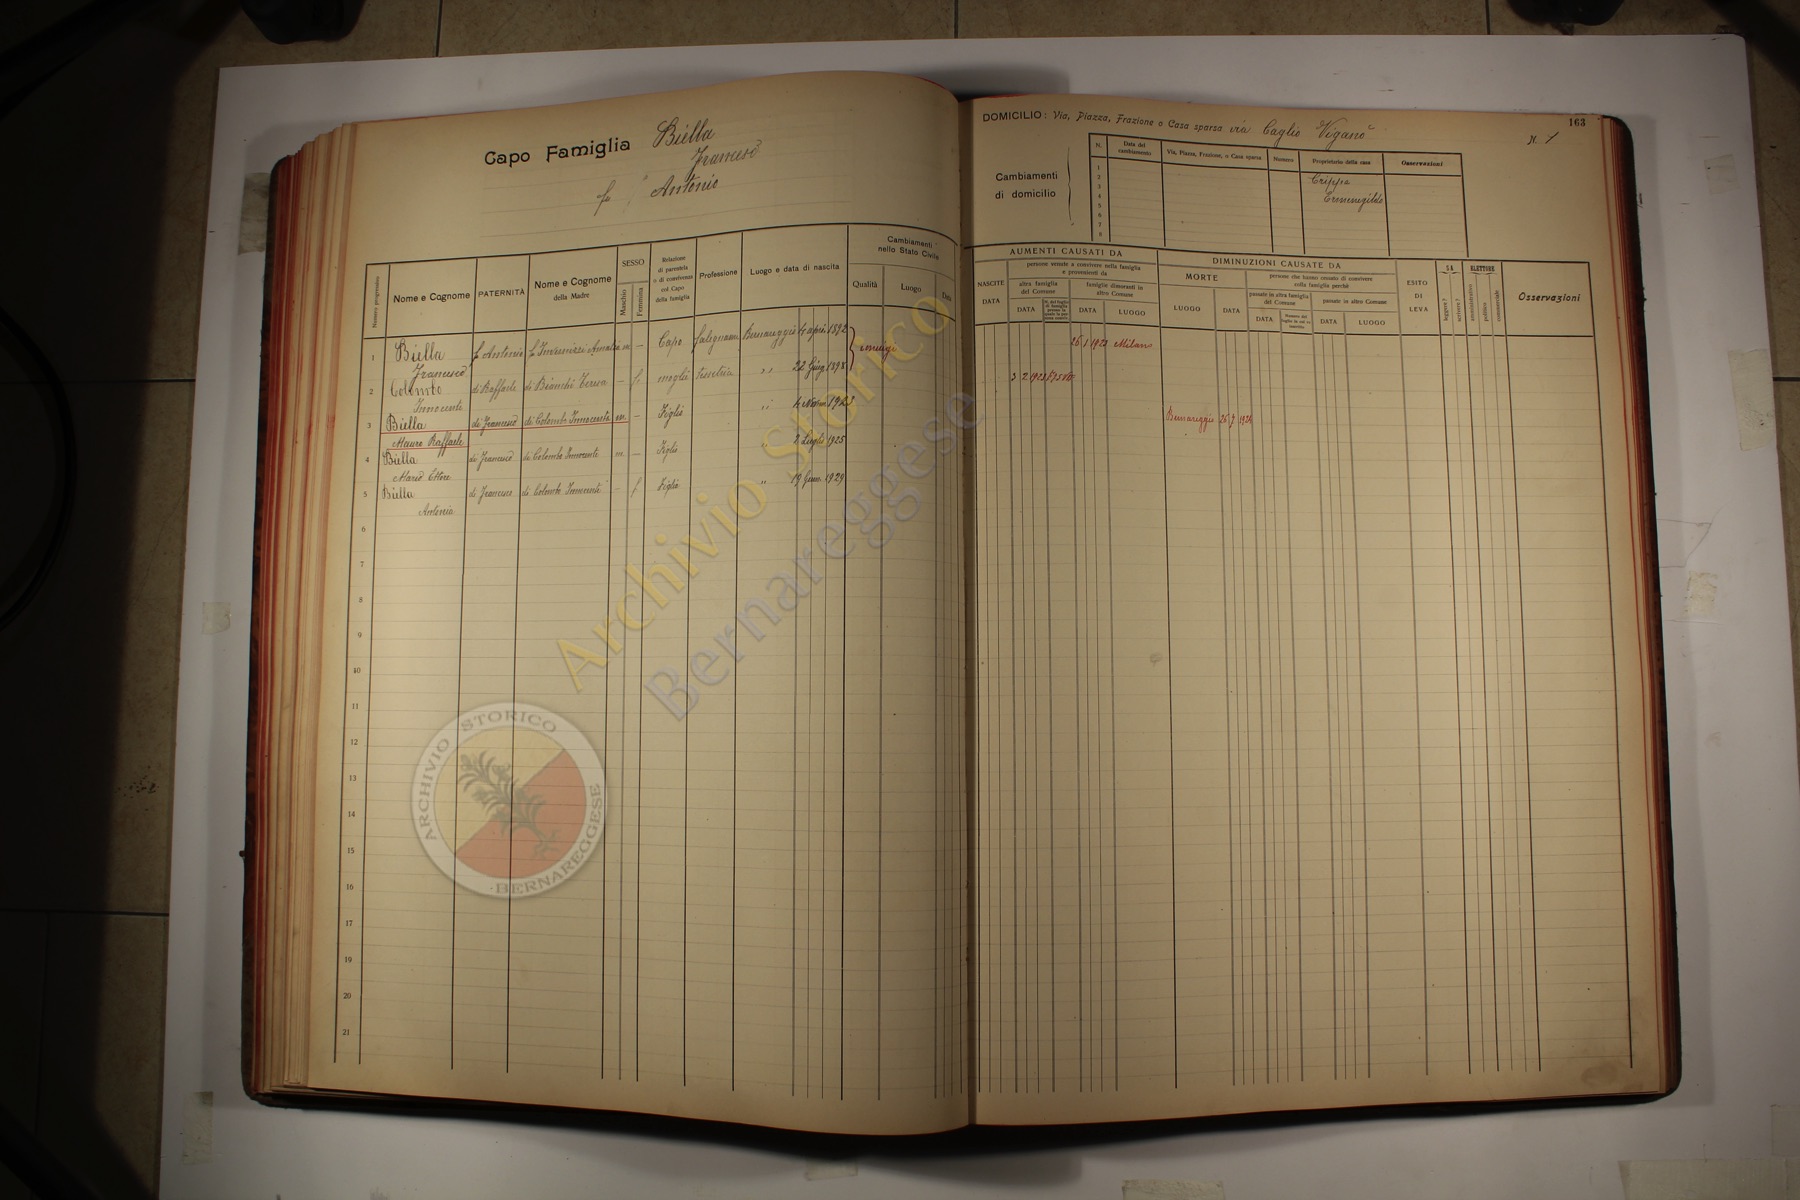 Capo Famiglia Biella
Francesco
fu Antonio
163
DOMICILIO: Via, Piazza, Frazione o Casa sparsa via Caglio Viganò N. 1
Cambiamenti di domicilio
N. Data del cambiamento Via, Piazza, Frazione, o Casa sparsa Numero Proprietario della casa Osservazioni
1
2
3
4
5
6
7
8
Crippa
Ermenegildo
Numero progressivo
Nome e Cognome
PATERNITÀ
Nome e Cognome
della Madre
SESSO
Maschio
Femmina
Relazione
di parentela
o di convivenza
col Capo
della famiglia
Professione
Luogo e data di nascita
Cambiamenti
nello Stato Civile
Qualità
Luogo
Data
AUMENTI CAUSATI DA
NASCITE
DATA
persone venute a convivere nella famiglia
e provenienti da
altra famiglia
del Comune
DATA
famiglie dimoranti in
altro Comune
DATA
LUOGO
DIMINUZIONI CAUSATE DA
MORTE
LUOGO
DATA
persone che hanno cessato di convivere
colla famiglia perchè
passate in altra famiglia
del Comune
DATA
passate in altro Comune
DATA
LUOGO
ESITO
DI
LEVA
SA
leggere?
scrivere?
ELETTORE
amministrativo
politico
commerciale
Osservazioni
1 Biella Francesco fu Antonio fu Invernizzi Amalia m – Capo falegname Bernareggio 4 apr. 1892 26 1 1923 Milano
2 Colombo Innocente di Raffaele di Bianchi Teresa – f. moglie " 22 Giug. 1898 3 2 1923
3 Biella Mauro Raffaele di Francesco di Colombo Innocente m. – Figlio " 1923 Bernareggio 26 7 1924
4 Biella Mario Ettore di Francesco di Colombo Innocente m. – Figlio " 7 Luglio 1925
5 Biella Antonia di Francesco di Colombo Innocente – f Figlia " 19 Genn. 1929
6
7
8
9
10
11
12
13
14
15
16
17
18
19
20
21
Archivio Storico
Bernareggese
ARCHIVIO STORICO
·BERNAREGGESE